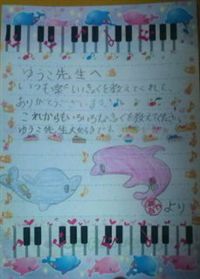 ゆうこ先生へ
いつも楽しいきょくを教えてくれて、
ありがとうございます
これからもいろいろなきょくを教えてください
ゆうこ先生大好き
より